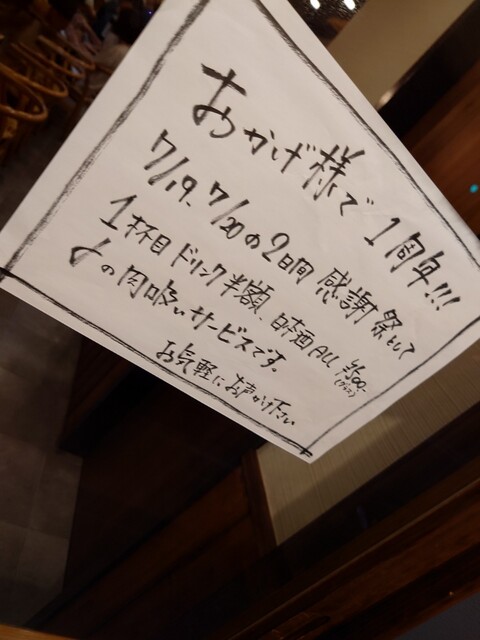 おかげ様で1周年!!!
7/19、7/20の2日間 感謝祭として
1杯目 ドリンク半額、日本酒ALL ¥500-
(グラス)
よの肉吸いサービスです。
お気軽にお声がけ下さい